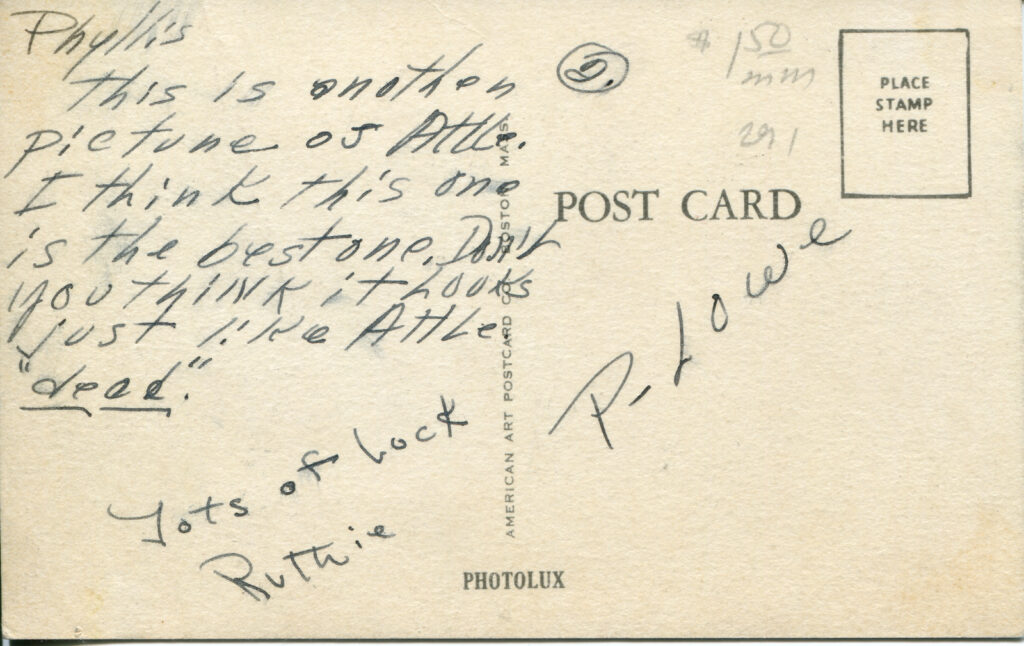 Phyllis
this is another
picture of Attle.
I think this one
is the best one. Don't
you think it looks
just like Attle.
"dead."
Lots of Luck
Ruthie
2.
$ 1 50
mm
291
PLACE
STAMP
HERE
POST CARD
P. Lowe
AMERICAN ART POSTCARD CO. BOSTON MASS.
PHOTOLUX